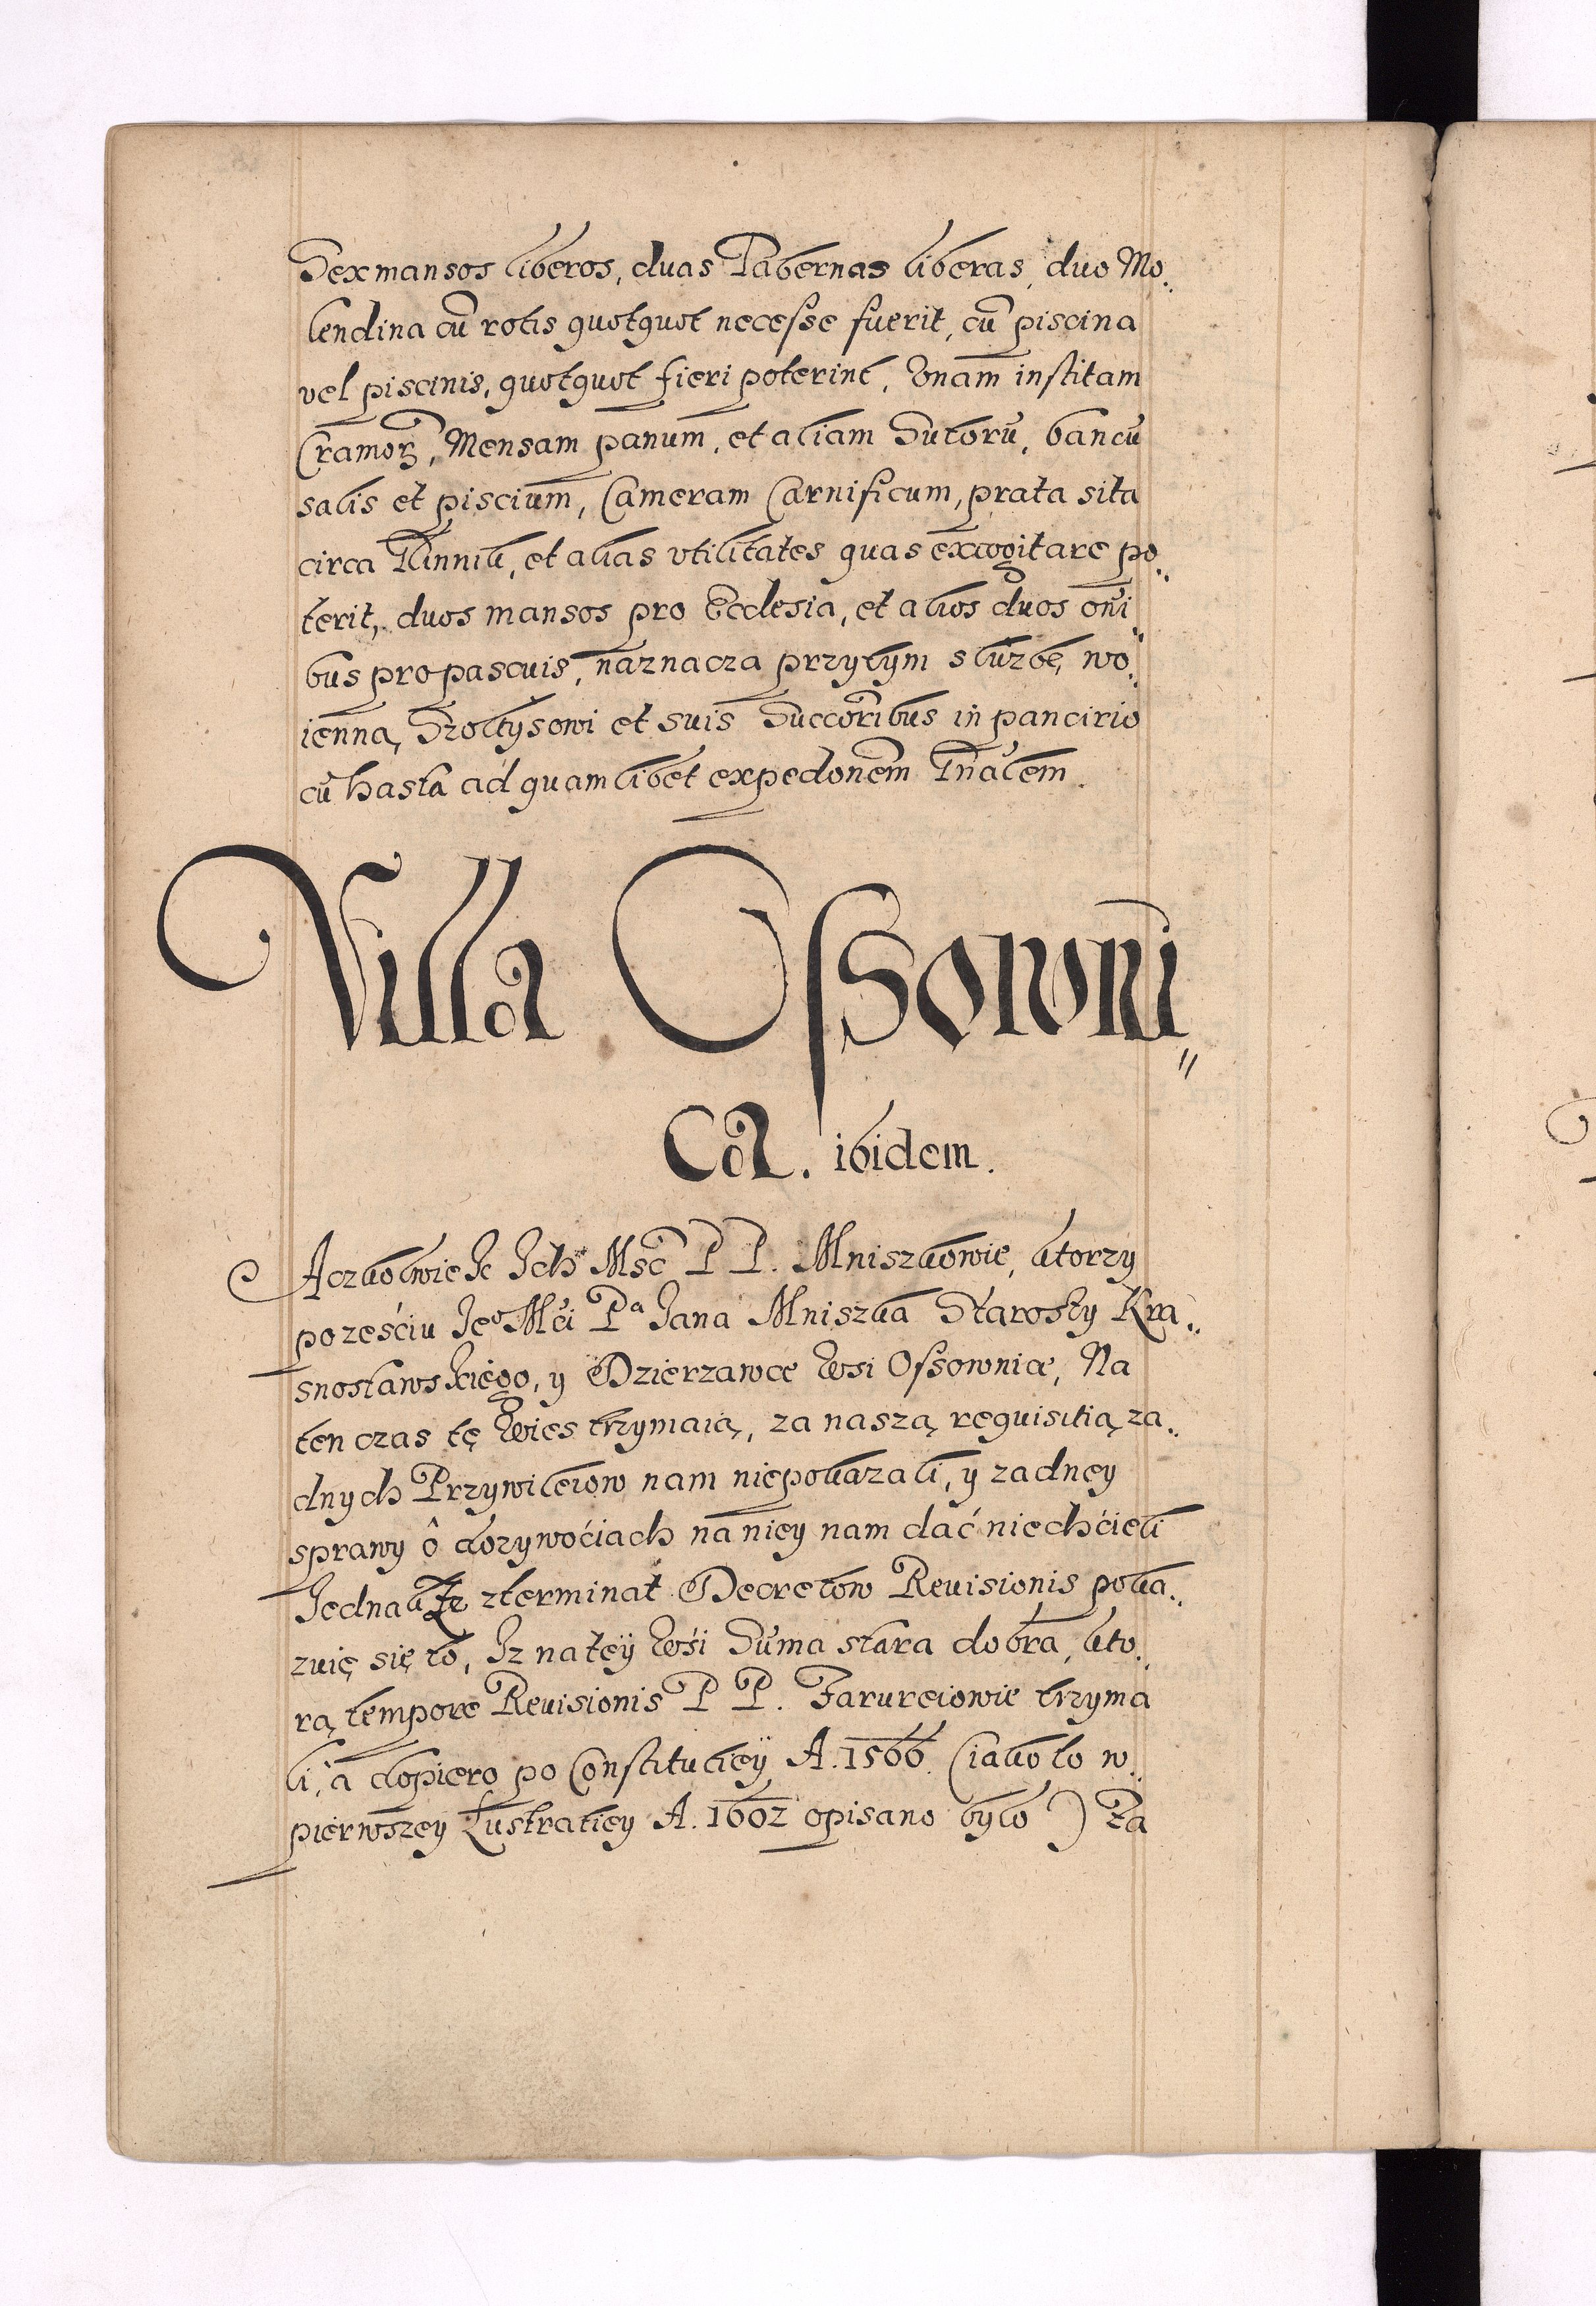 Sex mansos liberos, duas Tabernas liberas, duo Mo„
lendina cū rotis quotquot necesse fuerit, cū piscina
vel piscinis, quotquot fieri poterint, Vnam institam
Cramoꝝ, Mensam panum, et aliam Sutorū, bancū
salis et piscium, Cameram Carnificum, prata sita
circa Kinniki, et alias vtilitates quas excogitare po„
terit, duos mansos pro Ecclesia, et alios duos om̄i„
bus pro pascuis, naznacza przytym służbę wo„
ienną Szołtysowi et suis Succōribus in pancirio
cū hasta ad quamlibet expedōnem Tn̄alem.
Villa Ossowni„
ca. ibidem.
Aczkolwiek Ich Msc̄ P P. Mniszkowie, ktorzy
po ześciu Jeᵒ Mći Pᵃ Jana Mniszka Starosty Kra„
snostawskiego, y Dzierzawce Wsi Ossownice, Na
ten czas tę Wies trzymaią, za naszą requisitią za„
dnych Przywileiow nam niepokazali, y zadney
sprawy ô dozywoćiach na niey nam dać niechćieli
Jednak Ze zterminat Decretow Revisionis poka„
zuię się to, Iz na teÿ Wśi Suma stara dobra, kto„
rą tempore Revisionis P P. Farureiowie trzyma
li, a dopiero po Constitutieÿ A. 1566. (iako to w„
pierwszey Lustratiey A. 1602 opisano było) Za